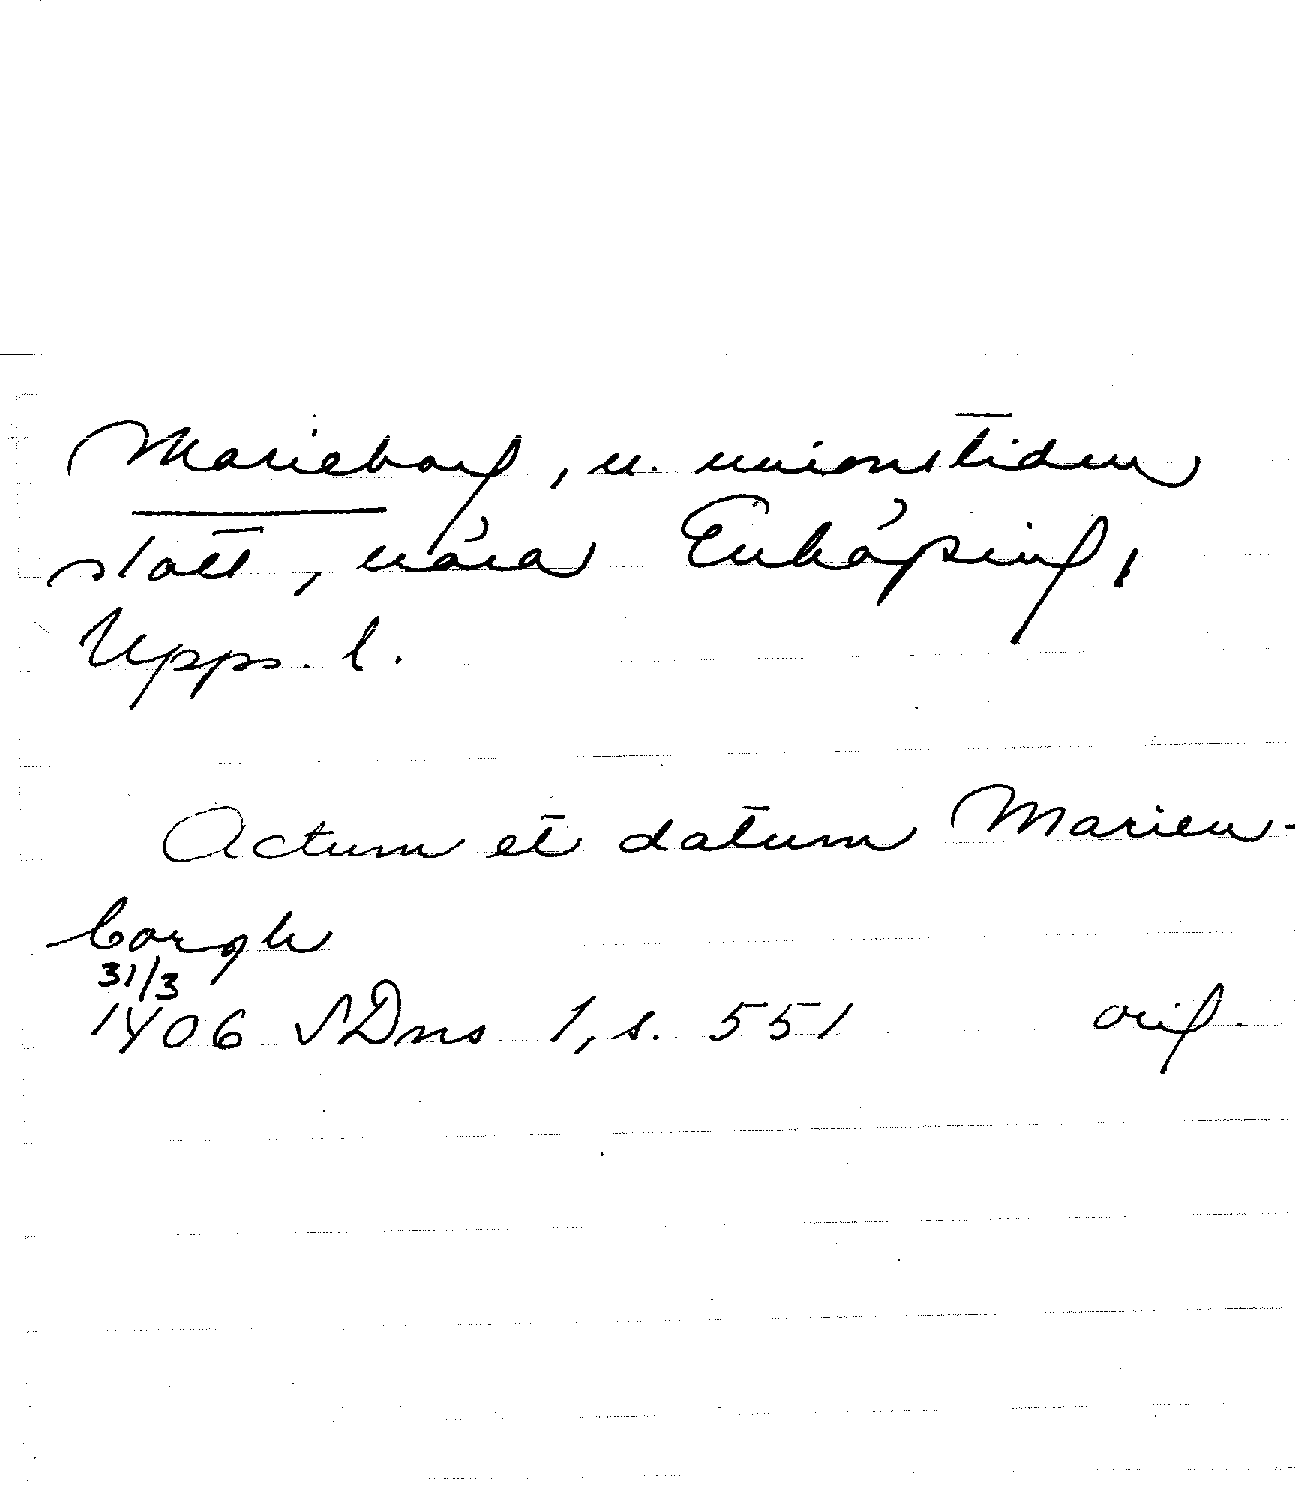 Marieborg, u. unionstiden
slott, nära Enköping,
Upps. l.
Actum et datum Marien-
borgh
31/3
1406 SDns 1, s. 551 orig.